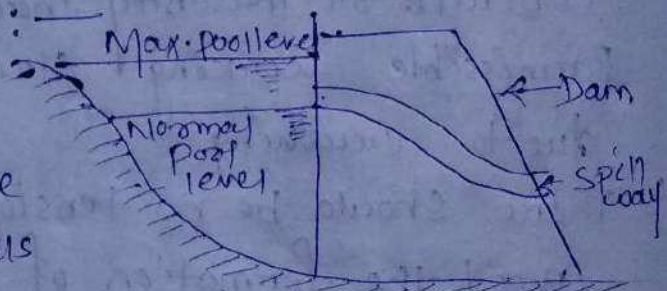 Max. pool level
Dam
Normal
pool
level
Spill
way